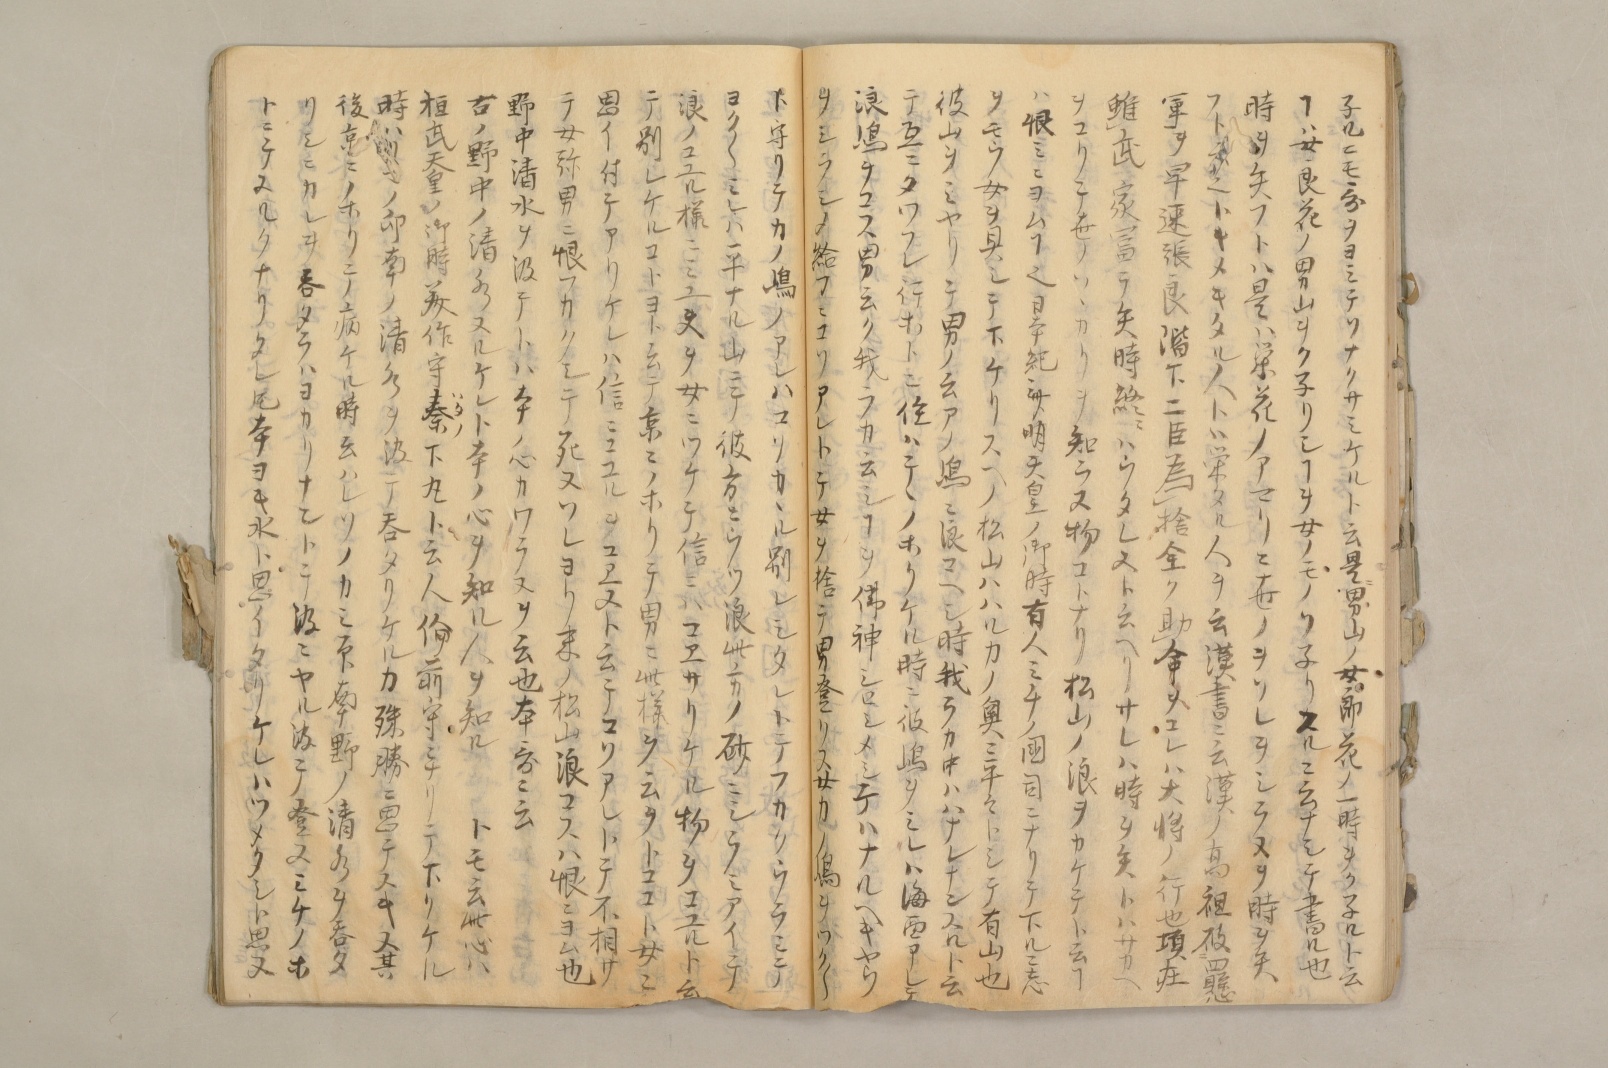 子ルニモ哥ヲヨミテソナクサミケルト云是男山ノ女郎花ノ一時ヲクネルト云
フハ女良花ノ男山ヲクネリシフヲ女ノモノクネリスルニ云ナシテ書ル也
時ヲ矢フトハ是ハ栄花ノアマリニ世ノヲソレヲシラヌヲ時ヲ矢
フト云トキメキタル人トハ栄タル人ヲ云漢書ニ云漢ノ高祖
軍ヲ早速張良階下二臣為捨全ク助命ヲエレハ大将ノ行也項庄
雖武家冨テ矢時終ニハウタレヌト云ヘリサレハ時ヲ矢トハサカヘ
ヲコリテ世ノハヽカリヲ知ラヌ物コトナリ松山ノ浪ヲカケテト云フ
ハ恨ミニヨムフ也日本紀云明天皇ノ御時有人ミチノ国司ニナリテ下ルニ志
ヲモウ女ヲ具シテ下ケリスヘノ松山ハハルカノ奥ニ平々トシテ有山也
彼山ヲミヤリテ男ノ云アノ嶋ニ浪コヘシ時我ラカ中ハハナレナンスルト云
テ互ニタワフレ行ホトニ住ハテヽノホリケル時ニ彼嶋ヲミレハ海西アレテ
浪嶋ヲコス男云ク我ラカ云シフヲ佛神シロシメシテハナルヘキヤウ
ヲシラシメ給フニコソアレトテ女ヲ捨テ男登リヌ女カノ嶋ヲツク〱
ト守リテカノ嶋ノアレハコソカヽル別レシタレトテフカクウラミテ
ヨク〱ミレハ平ナル山ニテ彼方ヨリウツ浪此方ノ砂ニシラミアイテ
浪ノコユル様ニミユ夫ヲ女ニツケテ信ニハコヱサリケル物ヲコユルト云
テ別レケルコトヨト云テ京ニノホリテ男ニ此様ヲ云ヲトココト女ニ
思イ付テアリケレハ信ニコユルヲコヱスト云テコソアレトテ不相サ
テ女弥男ニ恨フカクシテ死ヌソレヨリ末ノ松山浪コスハ恨ニヨム也
野中清水ヲ汲テトハ本ノ心カワラヌヲ云也本哥ニ云
古ノ野中ノ清水ヌルケレト本ノ心ヲ知ル人ソ知ル　トモ云此心ハ
桓武天皇ノ御時美作守秦下丸ト云人備前守ニナリテ下リケル
時ハリマノ印南ノ清水ヲ汲テ呑タリケルカ殊勝ニ思テスキヌ其
後京ニノホリテ病ケル時云ハレツノカミ京南野ノ清水ヲ呑タ
リシニカレヲ呑タラハヨカリナントテ汲ニヤル汲テ登ヌミケノホ
トニテヌルクナリタレ𪜈本ヨキ水ト思イタリケレハツメタシト思ヌ